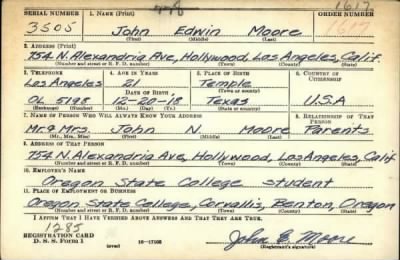 SERIAL NUMBER 1. NAME (Print) ORDER NUMBER
1617
3505 John Edwin Moore 1617
(First) (Middle) (Last)
2. ADDRESS (Print)
754 N. Alexandria Ave, Hollywood, Los Angeles, Calif.
(Number and street or R. F. D. number) (Town) (County) (State)
3. TELEPHONE 4. AGE IN YEARS 5. PLACE OF BIRTH 6. COUNTRY OF CITIZENSHIP
Los Angeles 21 Temple
DATE OF BIRTH (Town or county)
OL 5195 12-20-'18 Texas U.S.A
(Exchange) (Number) (Mo.) (Day) (Yr.) (State or country)
7. NAME OF PERSON WHO WILL ALWAYS KNOW YOUR ADDRESS 8. RELATIONSHIP OF THAT PERSON
Mr. & Mrs. John N. Moore Parents
(Mr., Mrs., Miss) (First) (Middle) (Last)
9. ADDRESS OF THAT PERSON
754 N. Alexandria Ave, Hollywood, Los Angeles, Calif
(Number and street or R. F. D. number) (Town) (County) (State)
10. EMPLOYER'S NAME
Oregon State College student
11. PLACE OF EMPLOYMENT OR BUSINESS
Oregon State College, Corvallis, Benton, Oregon
(Number and street or R. F. D. number) (Town) (County) (State)
I AFFIRM THAT I HAVE VERIFIED ABOVE ANSWERS AND THAT THEY ARE TRUE.
1285
REGISTRATION CARD
D. S. S. Form 1 (over) 16-17105 John E. Moore
(Registrant's signature)